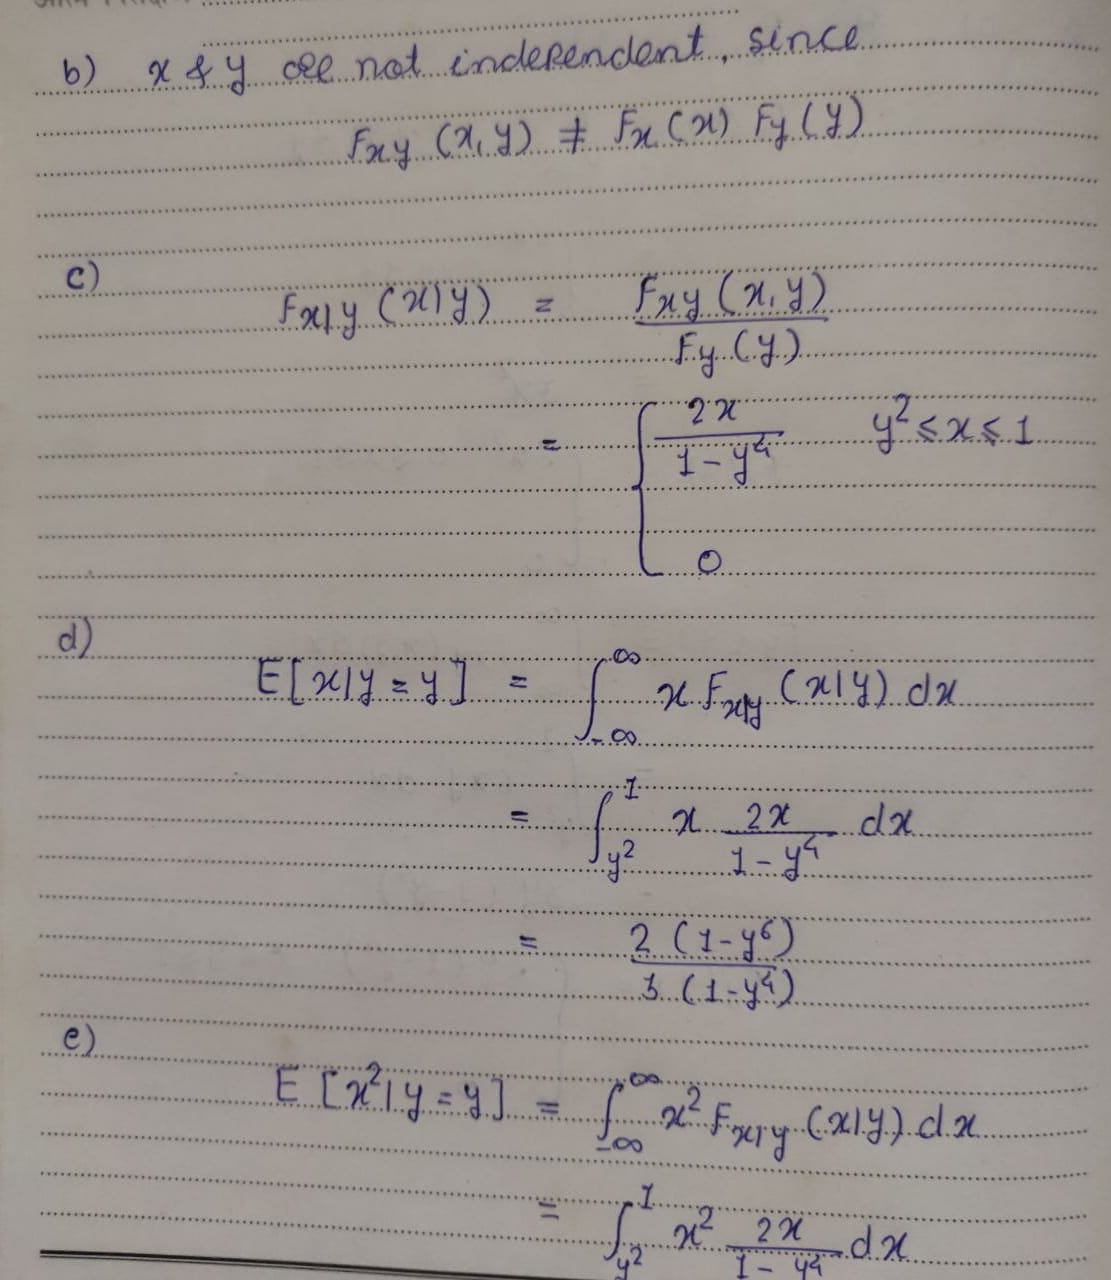 b) x & y are not independent, since
Fxy (x, y) ≠ Fx (x) Fy (y)
c) Fx|y (x|y) = Fxy (x, y) / Fy (y)
= { 2x / 1 - y⁴ y² ≤ x ≤ 1
0
d) E[x|y = y] = ∫_{-∞}^{∞} x Fx|y (x|y) dx
= ∫_{y²}^{1} x 2x / 1 - y⁴ dx
= 2 (1-y⁶) / 3 (1-y⁴)
e) E [x²|y = y] = ∫_{-∞}^{∞} x² Fx|y (x|y) dx
= ∫_{y²}^{1} x² 2x / 1 - y⁴ dx